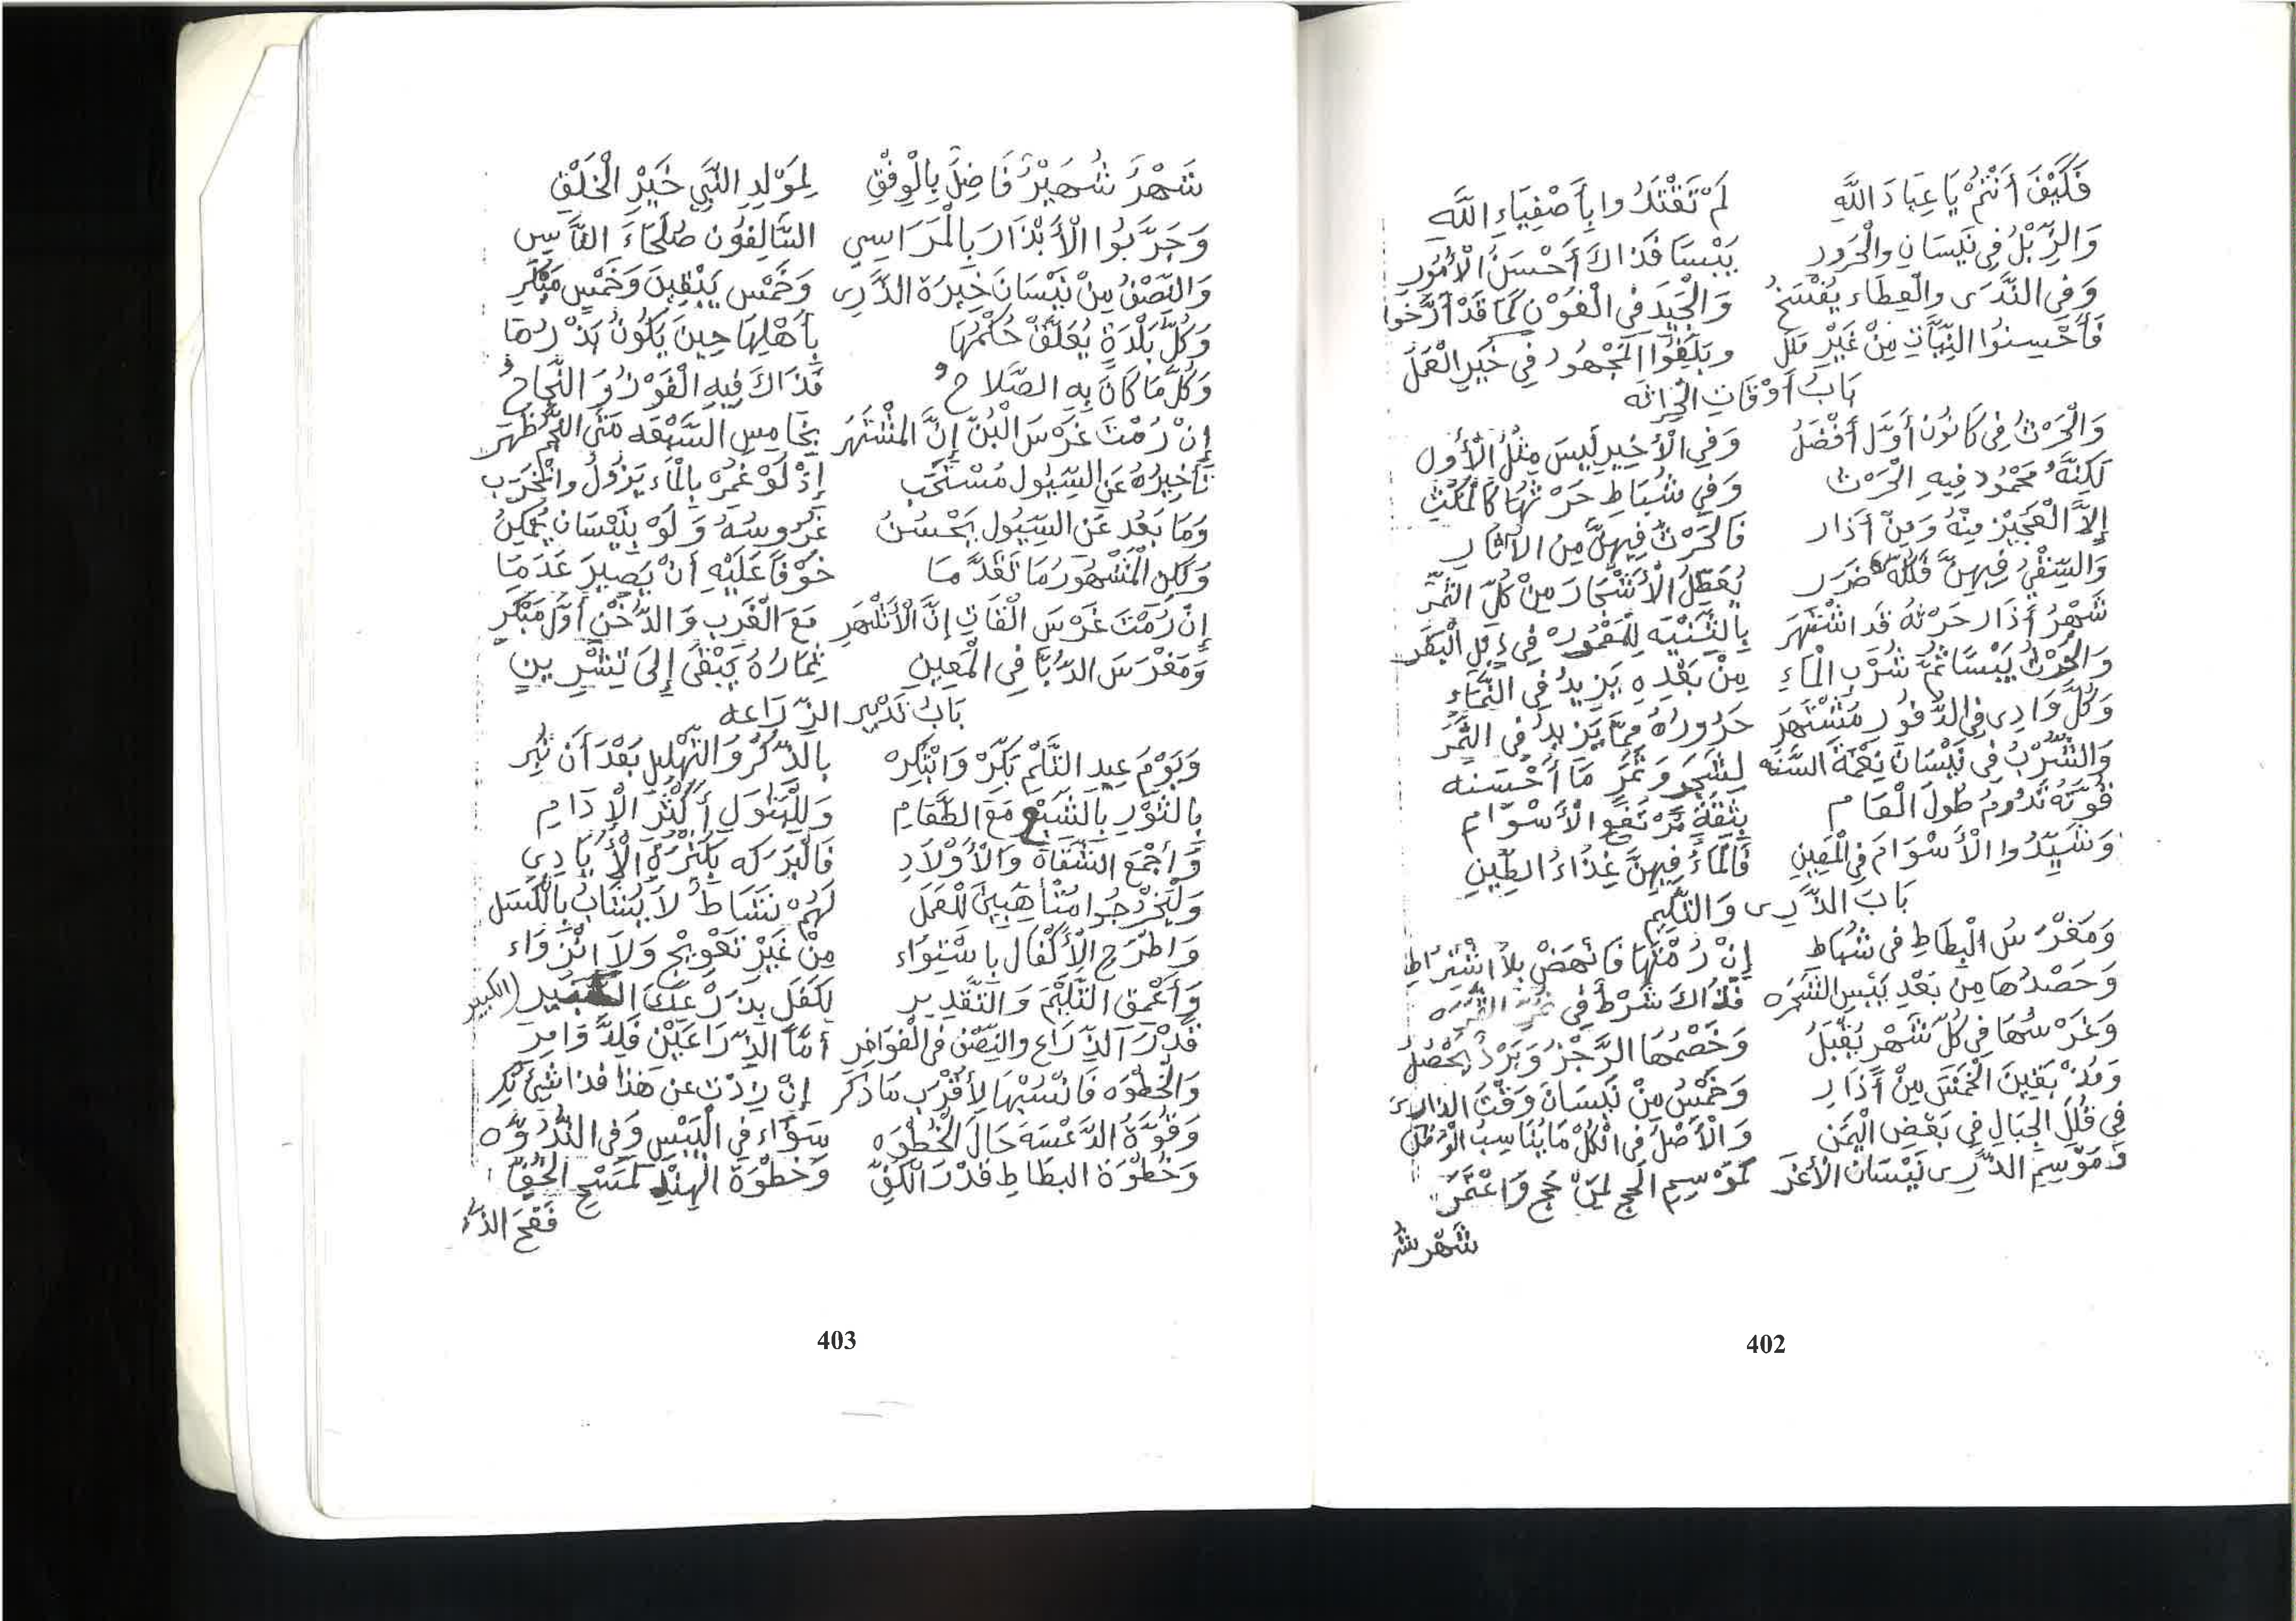 فَكَيْفَ أَنْتُمْ يَا عِبَادَ اللَّهِ لَمْ تَقْتَدُوا بِأَصْفِيَاءِ اللَّهِ
وَالزِّبْلُ فِي نَيْسَانِ وَالْحَرُورِ يَبْسَا فَذَاكَ أَحْسَنُ الْأُمُورِ
وَفِي النَّدَى وَالْعِطَاءِ يُفْسَخُ وَالْجَيِّدُ فِي الْفَوْزِ كَمَا قَدْ أَرَّخُوا
فَأَحْسِنُوا النِّيَّاتِ مِنْ غَيْرِ مَلَلْ وَبَلِّغُوا الْمَجْهُودَ فِي خَيْرِ الْعَمَلْ
بَابُ أَوْقَاتِ الْحِرَاثَه
وَالْحَرْثُ فِي كَانُونَ أَوَّلْ أَفْضَلُ وَفِي الْأَخِيرِ لَيْسَ مِثْلُ الْأَوَّلِ
لَكِنَّهُ مَحْمُودُ فِيهِ الْحَرْثُ وَفِي شُبَاطِ حَرْثُهَا كَالْمُكْثِ
إِلَّا الْعَجِيْزَ مِنْهُ وَمِنْ أَذَارِ فَالْحَرْثُ فِيهِنَّ مِنَ الْآثَارِ
وَالسَّقْيُ فِيهِنَّ فَلَهُ ضَرَرْ يُعَطِّلُ الْأَشْجَارَ مِنْ كُلِّ الثَّمَرْ
شَهْرُ أَذَارَ حَرْثُهُ قَدِ اشْتَهَرْ بِالثَّنْيَه فِي إِبِلِ الْبَقَرْ
وَالْحَرْثُ يَبْسًا ثُمَّ شُرْبِ الْمَاءِ مِنْ بَعْدِهِ يَزِيدُ فِي النَّمَاءِ
وَكُلُّ وَادِي فِي الدُّفُورِ مُشْتَهَرْ حَرُورُهُ مِمَّا يَزِيدُ فِي الثَّمَرْ
وَالشُّرْبُ فِي نَيْسَانَ نِعْمَةَ السَّنَه لِشَجَرٍ وَثَمَرٍ مَا أَحْسَنَه
قُوَّتُهُ تَدُومُ طُولَ الْعَامِ بِثِقَةٍ مُرْتَفِعِ الْأَسْوَامِ
وَشَيِّدُوا الْأَسْوَامَ فِي الْمَعِينِ فَالْمَاءُ فِيهِنَّ غِذَاءُ الطِّينِ
بَابُ الذَّرِى وَالتَّلِيمِ
وَمَغْرَسُ الْبَطَاطِ فِي شُبَاطِ إِنْ رُمْتَهَا فَانْهَضْ بِلَا اشْتِرَاطِ
وَحَصْدُهَا مِنْ بَعْدِ يَبْسِ الشَّجَرَه فَذَاكَ شَرْطٌ فِي
وَغَرْسُهَا فِي كُلِّ شَهْرٍ يُقْبَلُ وَخَصْمُهَا الرَّجْزُ وَبَرْدٌ يَحْصُلُ
وَمُذْ بَقِينَ الْخَمْسَ مِنْ أَذَارِ وَخَمْسُ مِنْ نَيْسَانَ وَقْتُ
فِي قُلَلِ الْجِبَالِ فِي بَعْضِ الْيَمَنْ وَالْأَصْلُ فِي الْكُلِّ مَا يُنَاسِبُ الْوَطَنْ
وَمَوْسِمُ الذَّرِى نَيْسَانَ الْأَغَرْ كَمَوْسِمِ الْحَجِّ لِمَنْ حَجَّ وَاعْتَمَرْ
شَهْر شُ
402
شَهْرُ شُهَيْرٌ فَاضِلٌ بِالْوِفْقِ لِمَوْلِدِ النَّبِيِّ خَيْرِ الْخَلْقِ
وَجَرَّبُوا الْأَبْذَارَ بِالْمَرَاسِي السَّالِفُونَ صُلَحَاءُ النَّاسِ
وَالنِّصْفُ مِنْ نَيْسَانَ خِيرَةُ الذَّرِى وَخَمْسٍ يَبْقِينَ وَخَمْسٍ مَبْكَرِ
وَكُلُّ بَلْدَةٍ يُعَلَّقْ حُكْمُهَا بِأَهْلِهَا حِينَ يَكُونُ بَذْرُهَا
وَكُلُّ مَا كَانَ بِهِ الصَّلَاحُ فَذَاكَ فِيهِ الْفَوْزُ وَالنَّجَاحُ
إِنْ رُمْتَ غَرْسَ الْبُنِّ إِنَّ الْمُشْتَهَرْ بِخَامِسِ السَّبْعَه مَتَى النَّجْمُ ظَهَرْ
تَأْخِيرُهُ عَنِ السُّيُولِ مُسْتَحَبْ إِذْ لَوْ غُمِرْ بِالْمَاءِ يَزُولُ وَانْخَرَبْ
وَمَا بَعُدَ عَنِ السُّيُولِ يَحْسُنُ غُرُوسُهُ وَلَوْ بِنَيْسَانَ يُمْكِنُ
وَلَكِنِ الْمَشْهُورُ مَا تَقَدَّمَا خَوْفًا عَلَيْهِ أَنْ يَصِيرَ عَدَمَا
إِنْ رُمْتَ غَرْسَ الْقَاتِ إِنَّ الْأَشْهَرِ مَعَ الْغَرِبِ وَالدُّخْنِ أَوَّلْ مَبْكَرِ
وَمَغْرَسَ الدُّبَّا فِي الْمَعِينِ ثِمَارُهُ يَبْقَى إِلَى تِشْرِينِ
بَابُ تَدْبِيرِ الزِّرَاعَه
وَيَوْمَ عِيدِ التَّلْمِ بَكِّرْ وَابْتَكِرْ بِالذِّكْرِ وَالتَّهْلِيلِ بَعْدَ أَنْ تُبِرْ
بِالثَّوْرِ بِالشَّبْعِ مَعَ الطَّعَامِ وَلِلْبَتُولِ أَكْثَرَ الْإِدَامِ
وَأَجْمَعِ الشُّقَاةَ وَالْأَوْلَادِ فَالْبَرَكَه بِكَثْرَةِ الْأَيَادِي
وَلْيَخْرُجُوا مُتَأَهِّبِينَ لِلْعَمَلْ لَهُمْ نَشَاطٌ لَا يُشَابُ بِالْكَسَلْ
وَاطْرَحِ الْأَكْفَالَ بِاسْتِوَاءِ مِنْ غَيْرِ تَعْوِيجٍ وَلَا انْزِوَاءِ
وَأَعْمِقِ التَّلِيْمَ وَالتَّقْدِيرِ لِكَفَلِ بِذَرْعِكَ (الكبير
قَدْرَ الذِّرَاعِ وَالنِّصْفُ فِي الْفَوَاخِرِ أَمَّا الذِّرَاعَيْنِ فَلَا
وَالْخُطْوَه فَانْسُبْهَا لِأَقْرَبِ مَا ذُكِرْ إِنْ زِدْتَ عَنْ هَذَا فَذَا شَيْءٌ نُكِرْ
وَقُوَّةُ الدَّعْسَه حَالَ الْخُطْوَه سَوَاءُ فِي الْيَبْسِ وَفِي النَّدْوَه
وَخُطْوَةُ الْبَطَاطِ قَدْرَ الْكَفِّ وَخُطْوَةُ الْهِنْدِ كَمَسْحِ الْخُفِّ
فَفَتَحَ
403